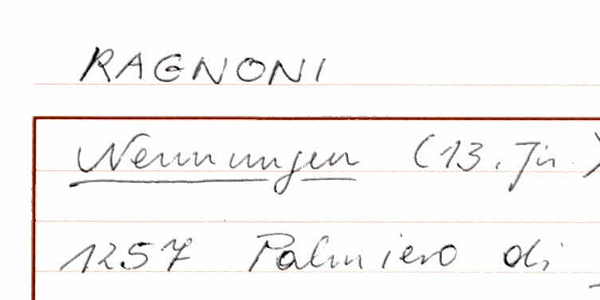 RAGNONI
Nennungen (13. Jh.)
1257 Palmiero di